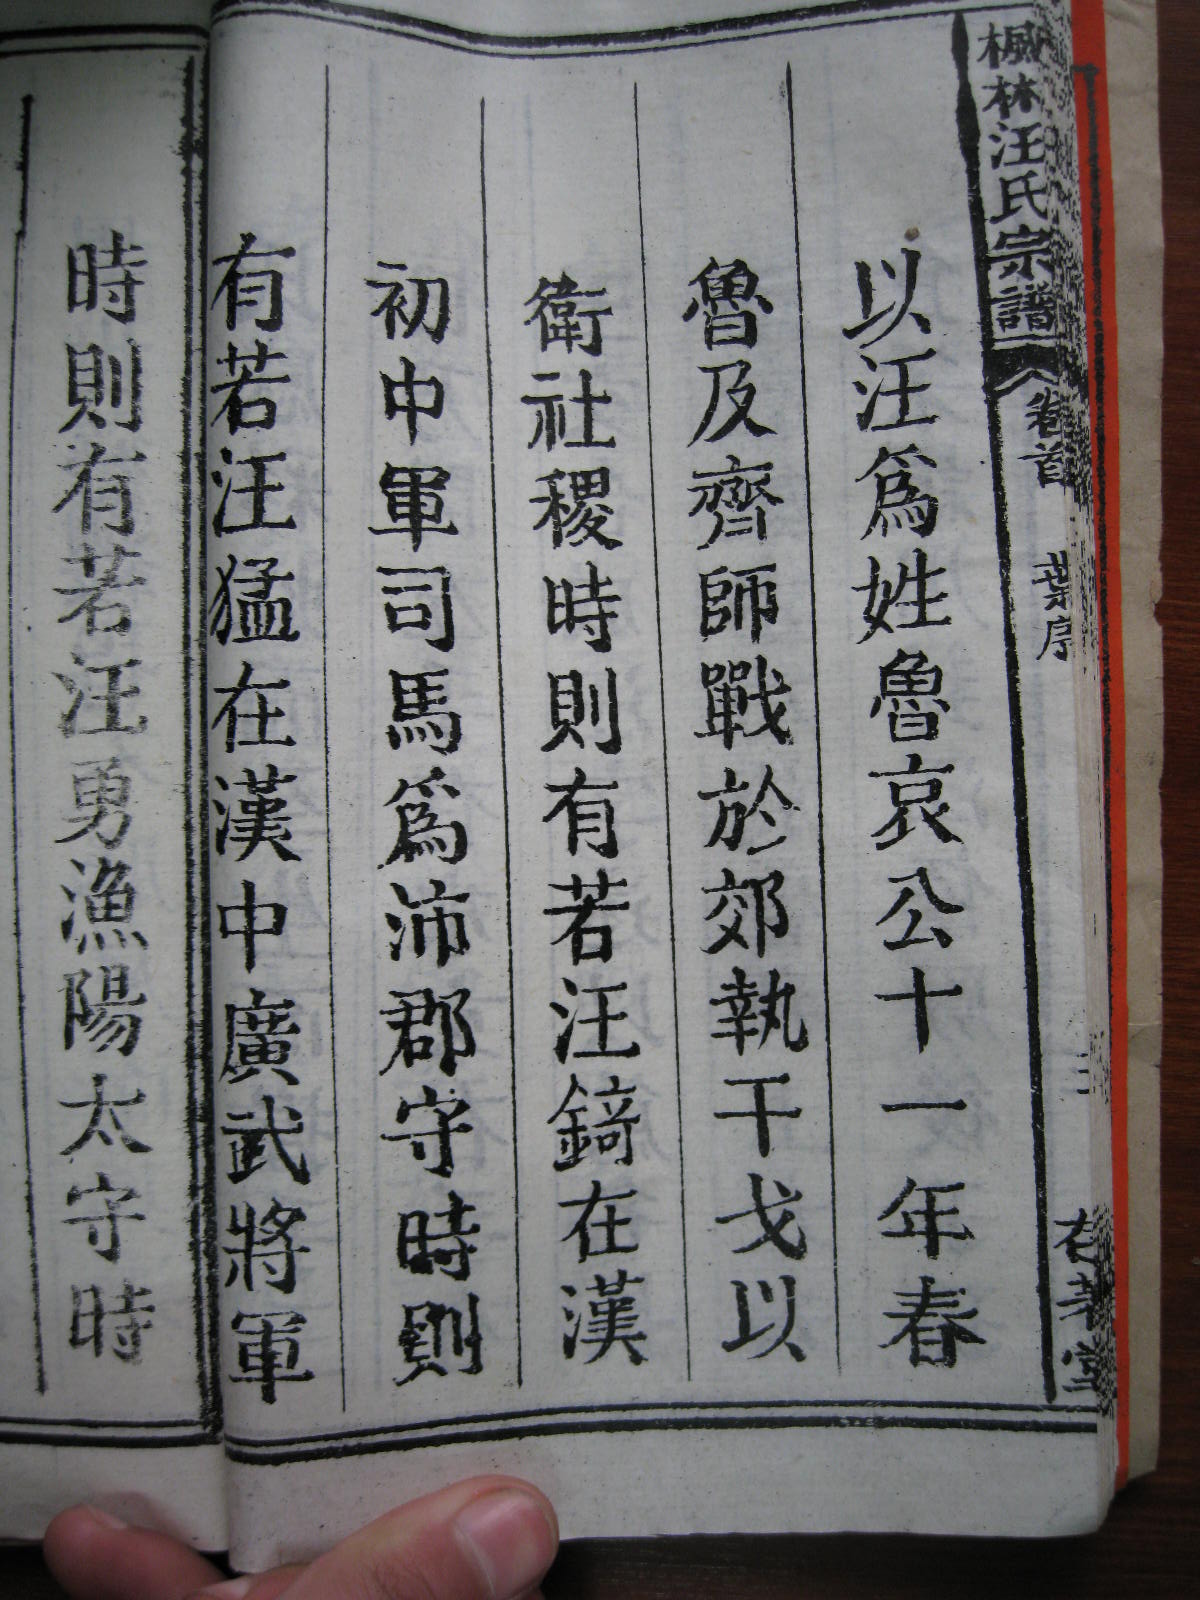 楓林汪氏宗譜 卷首 葉序
以汪爲姓魯哀公十一年春
魯及齊師戰於郊執干戈以
衛社稷時則有若汪錡在漢
初中軍司馬爲沛郡守時則
有若汪猛在漢中廣武將軍
時則有若汪勇漁陽太守時